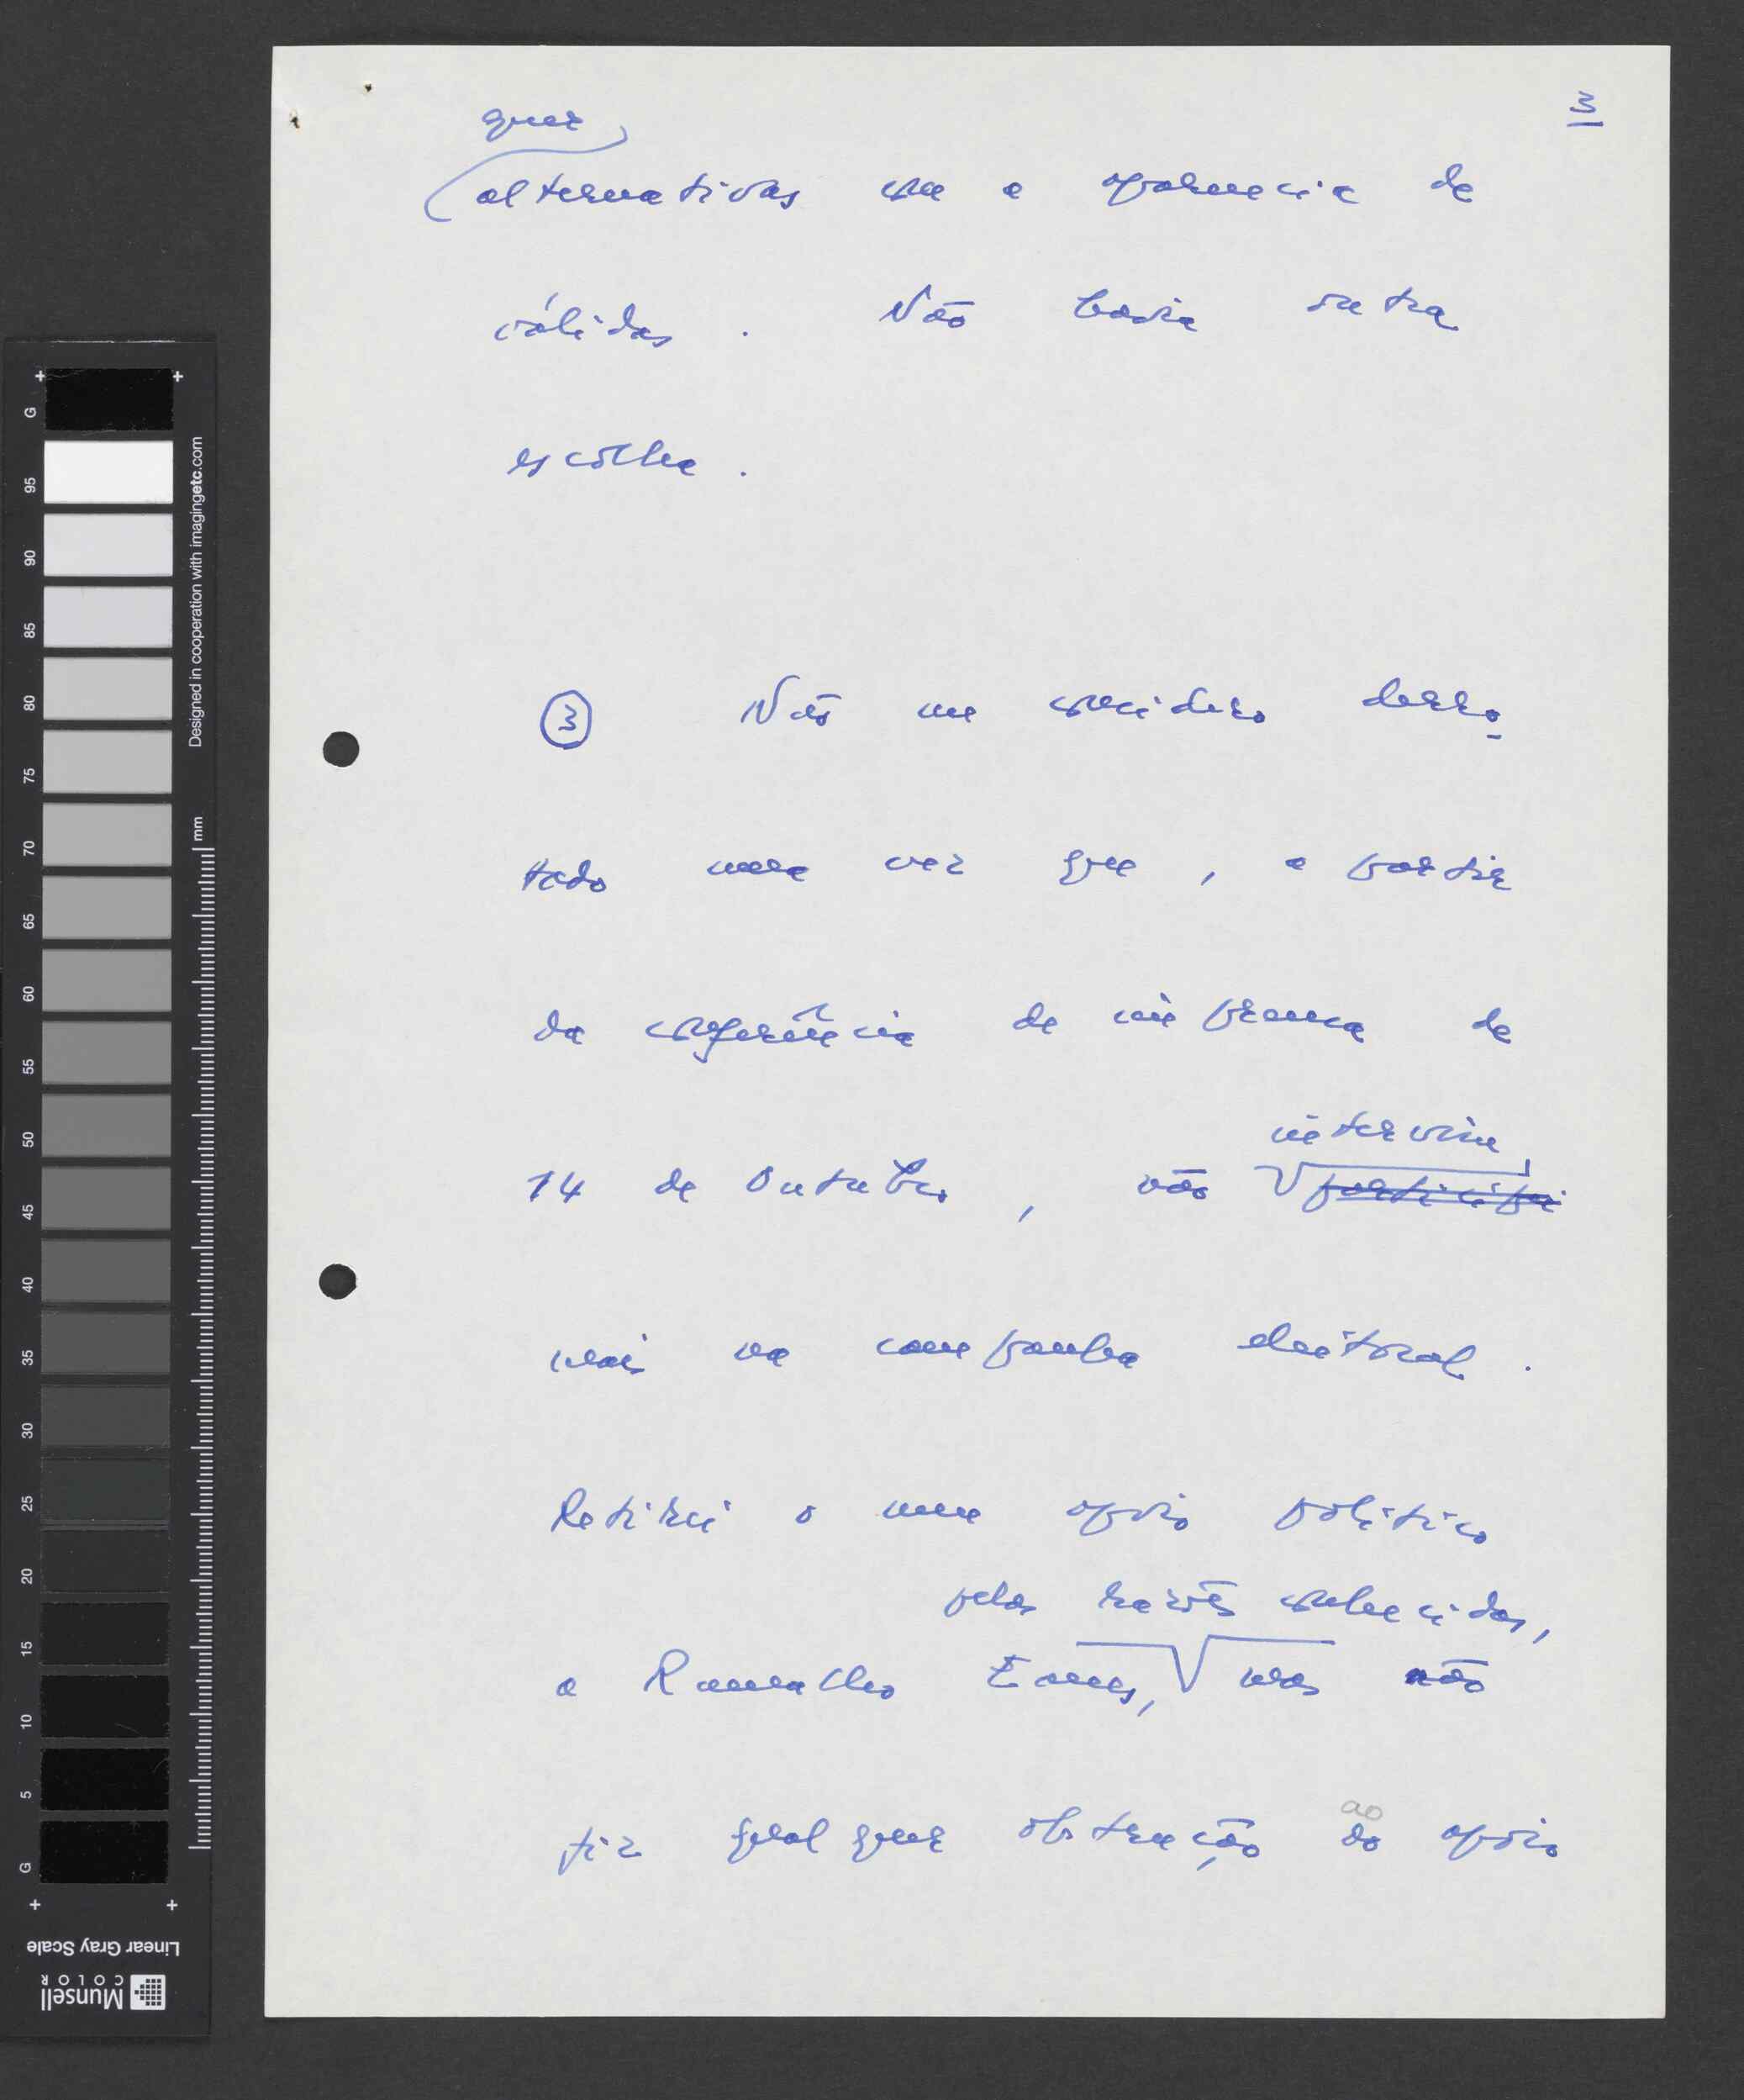 3
quer
alternativas com a aparência de
válidas . Não havia outra
escolha .
3 Não me considero derro-
tado uma vez que , a partir
da conferência de imprensa de
intervim
14 de Outubro , não participei
mais na campanha eleitoral .
Retirei o meu apoio político
pelas razões conhecidas,
a Ramalho Eanes, mas não
fiz qualquer obstrução do apoio
ao
G
95
90
85
80
75
70
65
60
55
50
45
40
35
30
25
20
15
10
5
G
Designed in cooperation with imagingetc.com
mm
Linear Gray Scale
Munsell
COLOR